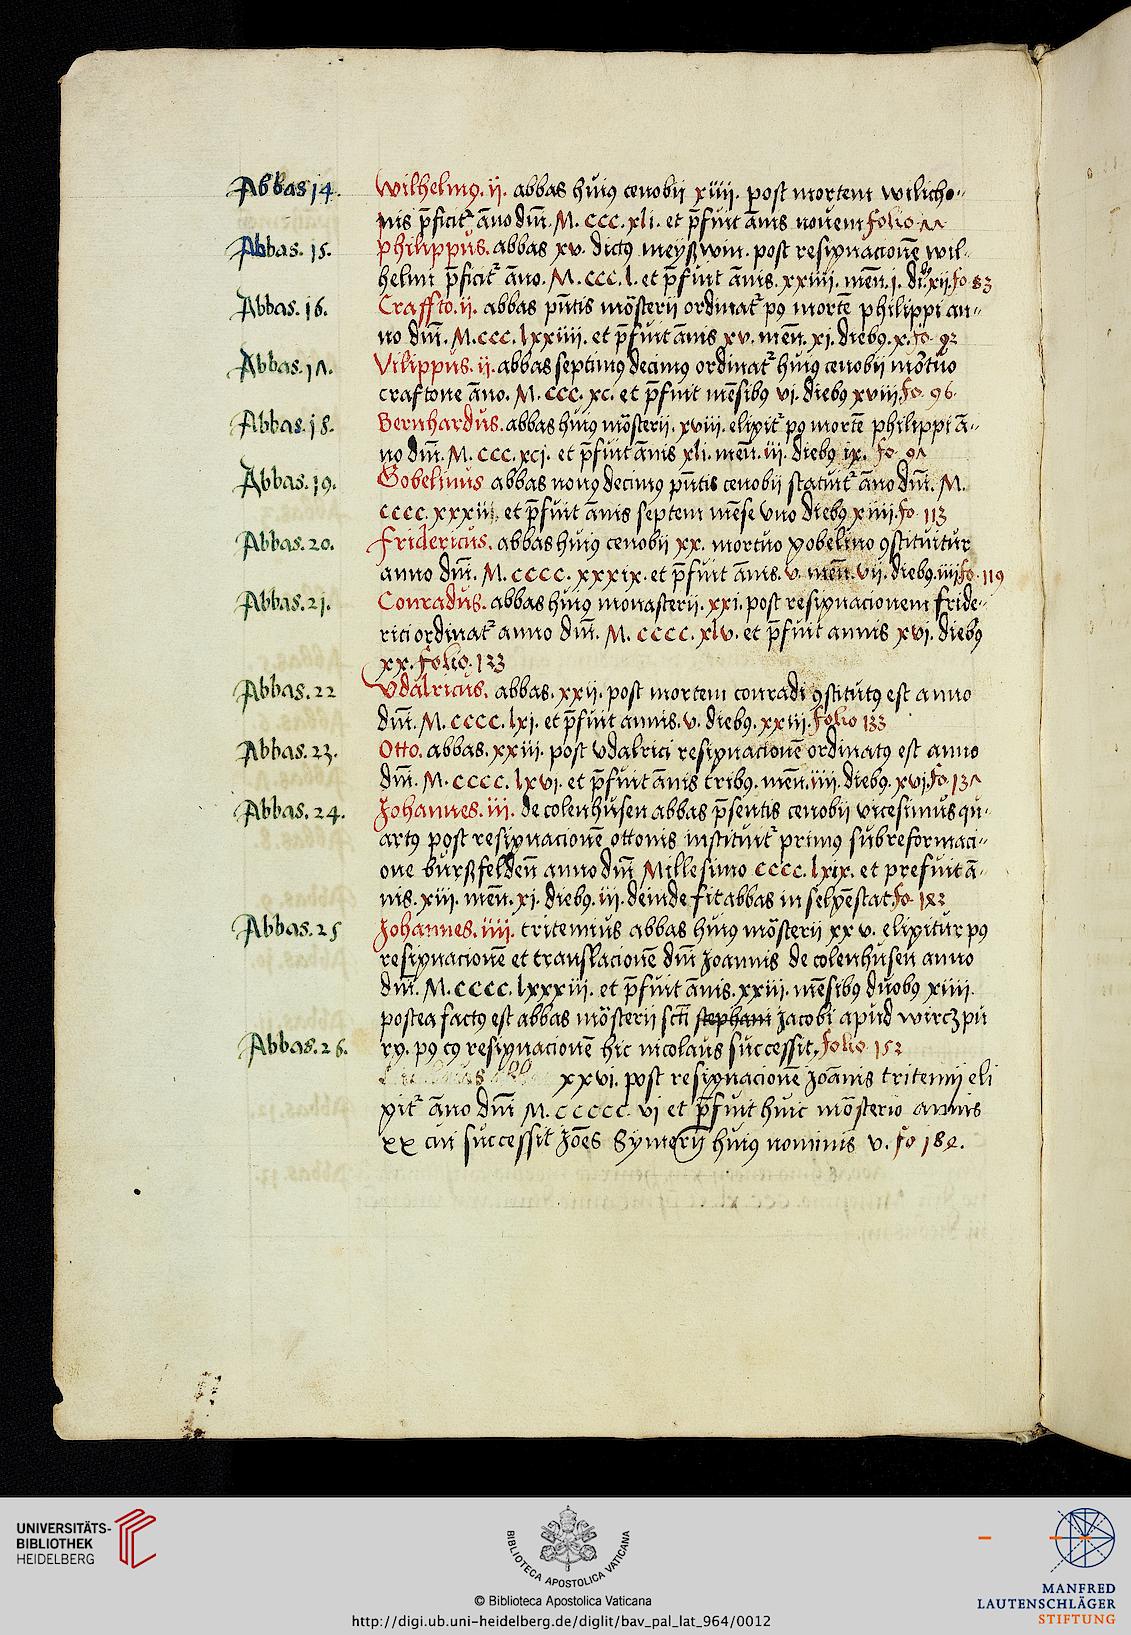 Abbas 14. Wilhelmꝰ. ij. abbas huiꝰ cenobij xiiij. post mortem wilicho-
nis p̄ficit᷑ āno dn̄i. M. ccc. xli. et p̄fuit ānis nouem folio. 77
Abbas. 15. Philippus. abbas xv. dictꝰ meyszwin. post resignacionē wil-
helmi p̄ficit᷑ āno. M. ccc. l. et p̄fuit ānis. xxiiii. men̄. i. di. xii. fo. 83
Abbas. 16. Craffto. ii. abbas pn̄tis mōsterii ordinat᷑ pꝰ mortē philippi an-
no dn̄i. M. ccc. lxxiiii. et p̄fuit ānis xv. men̄. xi. diebꝰ. x. fo. 92
Abbas. 17. Vilippus. ii. abbas septimꝰ decimꝰ ordinat᷑ huiꝰ cenobij mōtuo
craftone āno. M. ccc. xc. et p̄fuit mēsibꝰ vi. diebꝰ xviii. fo. 96.
Abbas. 18. Bernhardus. abbas huiꝰ mōsterii. xviii. eligit᷑ pꝰ mortē philippi ā-
no dn̄i. M. ccc. xcj. et p̄fuit ānis xli. men̄. iii. diebꝰ ix. fo. 97
Abbas. 19. Gobelinus abbas nonꝰ decimꝰ pn̄tis cenobij statuit᷑ āno dn̄i. M.
cccc. xxxiij. et p̄fuit ānis septem mēse vno diebꝰ xiiii. fo. 113
Abbas. 20. Fridericus. abbas huiꝰ cenobij xx. mortuo gobelino ꝯstituitur
anno dn̄i. M. cccc. xxxix. et p̄fuit ānis. v. men̄. vii. diebꝰ. iiii fo. 119
Abbas. 21. Conradus. abbas huiꝰ monasterij. xxi. post resignacionem fride-
rici ordinat᷑ anno dn̄i. M. cccc. xlv. et p̄fuit annis xvi. diebꝰ
xx. folio. 123
Abbas. 22 Vdalricus. abbas. xxij. post mortem conradi ꝯstitutꝰ est anno
dn̄i. M. cccc. lxj. et p̄fuit annis. v. diebꝰ. xxiij. folio 133
Abbas. 23. Otto. abbas. xxiii. post vdalrici resignacionē ordinatꝰ est anno
dn̄i. M. cccc. lxvi. et p̄fuit ānis tribꝰ. men̄. iiii. diebꝰ. xvi. fo. 137
Abbas. 24. Johannes. iii. de colenhusen abbas p̄sentis cenobij vicesimus qu-
artꝰ post resignacionē ottonis instituit᷑ primꝰ sub reformaci-
one burszfelden̄ anno dn̄i Millesimo cccc. lxix. et prefuit ā-
nis. xiii. men̄. xi. diebꝰ. iii. deinde fit abbas in selgēstat. fo. 142
Abbas. 25 Johannes. iiii. tritemius abbas huiꝰ mōsterii xxv. eligitur pꝰ
resignacionē et translacionē dn̄i Joannis de colenhusen anno
dn̄i. M. cccc. lxxxiii. et p̄fuit ānis. xxiii. mēsibꝰ duobꝰ xiiii.
postea factꝰ est abbas mōsterii sct̄i stephani Jacobi apud wirczpu
Abbas. 26. rg. pꝰ cꝰ resignacionē hic nicolaus successit. folio 152
xxvi. post resignacionē Joānis tritemij eli
git᷑ āno dn̄i M. ccccc. vi et p̄fuit huic mōsterio annis
xx cui successit Joēs Symerij huiꝰ nominis v. fo 182.
UNIVERSITÄTS-
BIBLIOTHEK
HEIDELBERG
BIBLIOTECA APOSTOLICA VATICANA
© Biblioteca Apostolica Vaticana
http://digi.ub.uni-heidelberg.de/diglit/bav_pal_lat_964/0012
MANFRED
LAUTENSCHLÄGER
STIFTUNG